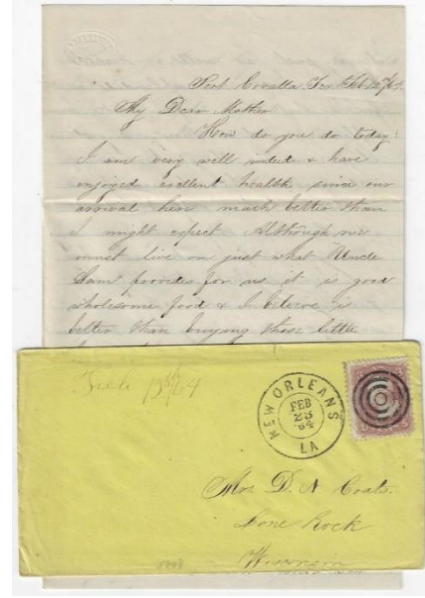 Port Cavallo Tex Feb 12th/64.
My Dear Mother
How do you do today?
I am very well indeed & have
enjoyed exellent health since our
arrival here much better than
I might expect. Although we
must live on just what Uncle
Sam provides for us it is good
wholesome food & I believe is
better than buying those little
Feb 13th/64
NEW ORLEANS
FEB
23
'64
LA
Mrs D. N. Coats.
Lone Rock
Wisconsin